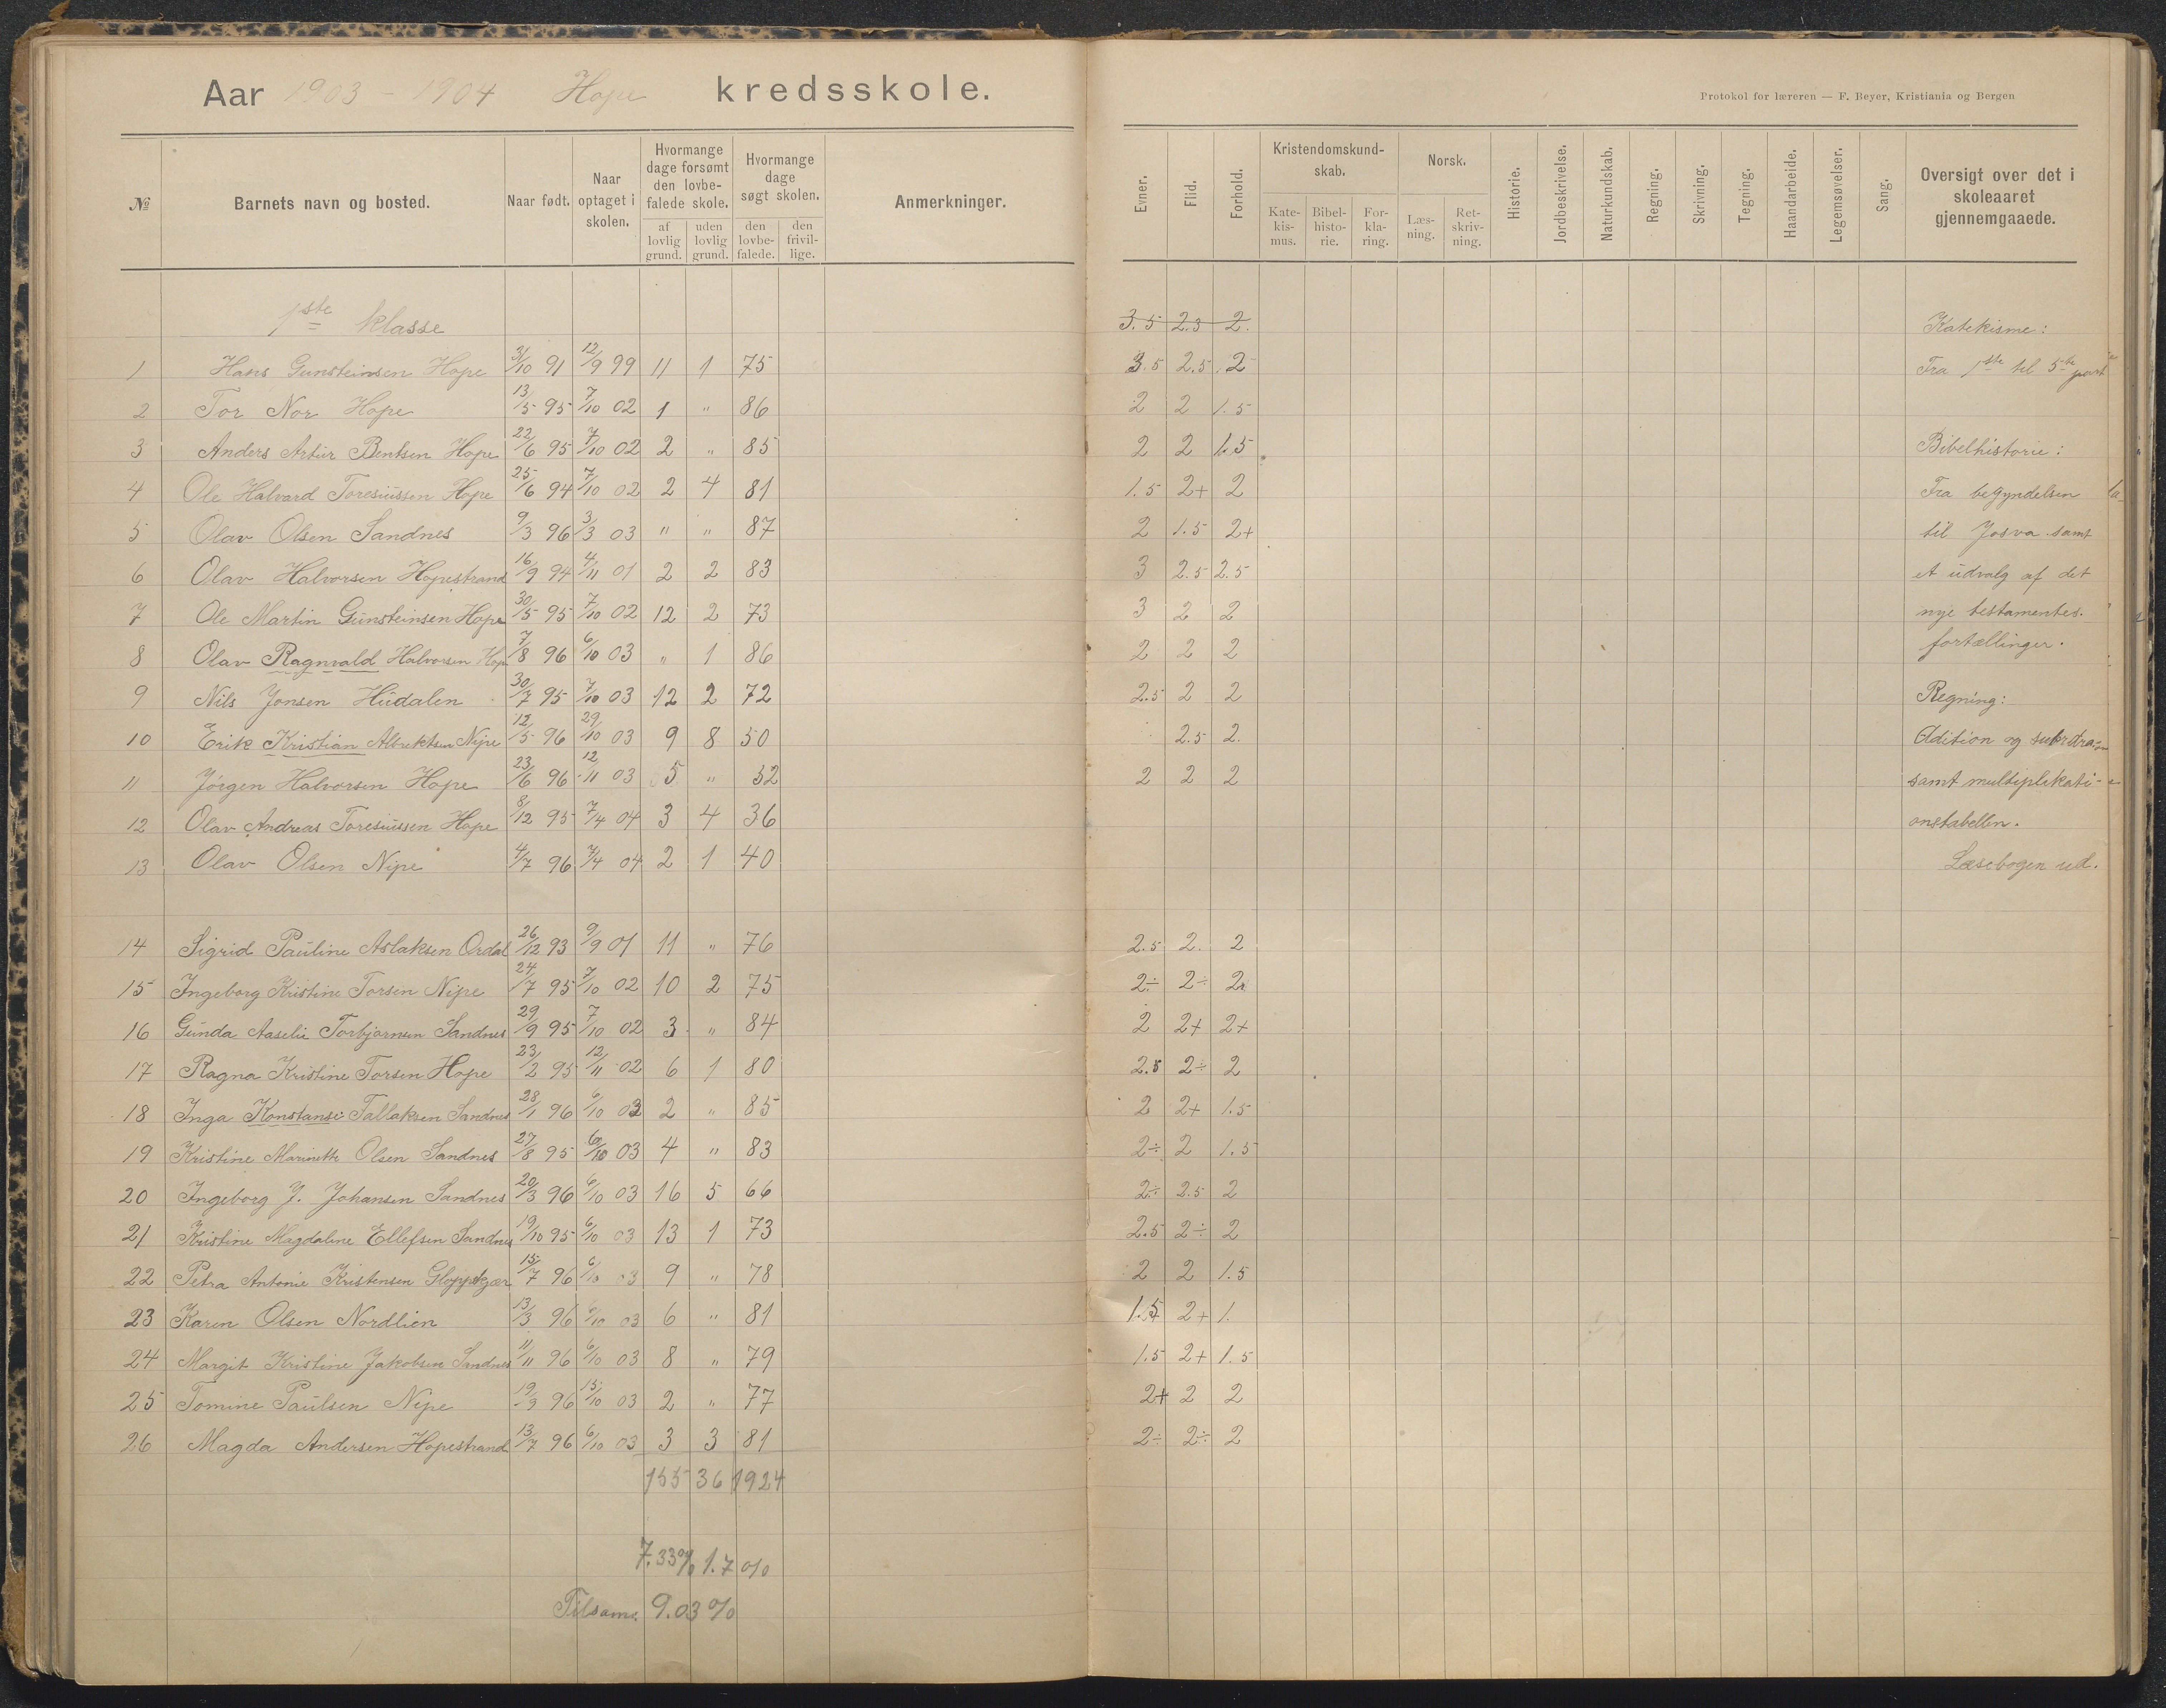 Aar 1903 - 1904 Hope kredsskole.
Protokol for læreren — F. Beyer, Kristiania og Bergen
№ Barnets navn og bosted. Naar født. Naar optaget i skolen. Hvormange dage forsømt den lovbefalede skole. af lovlig grund. uden lovlig grund. Hvormange dage søgt skolen. den lovbefalede. den frivillige. Anmerkninger.
Evner. Flid. Forhold. Kristendomskundskab. Katekismus. Bibelhistorie. Forklaring. Norsk. Læsning. Retskrivning. Historie. Jordbeskrivelse. Naturkundskab. Regning. Skrivning. Tegning. Haandarbeide. Legemsøvelser. Sang. Oversigt over det i skoleaaret gjennemgaaede.
1ste klasse 3.5 2.5 2.
1 Hans Gunsteinsen Hope 31/10 91 12/9 99 11 1 75 3.5 2.5 2
2 Tor Nor Hope 13/5 95 7/10 02 1 " 86 2 2 1.5
3 Anders Artur Bentsen Hope 22/6 95 7/10 02 2 " 85 2 2 1.5
4 Ole Halvard Toresiussen Hope 25/6 94 7/10 02 2 4 81 1.5 2+ 2
5 Olav Olsen Sandnes 9/3 96 3/3 03 " " 87 2 1.5 2+
6 Olav Halvorsen Hopestrand 16/9 94 4/11 01 2 2 83 3 2.5 2.5
7 Ole Martin Gunsteinsen Hope 30/5 95 7/10 02 12 2 73 3 2 2
8 Olav Ragnvald Halvorsen Hop 7/8 96 6/10 03 " 1 86 2 2 2
9 Nils Jonsen Hudalen 30/7 95 7/10 03 12 2 72 2.5 2 2
10 Erik Kristian Albrektsen Nipe 12/5 96 29/10 03 9 8 50 2.5 2.
11 Jørgen Halvorsen Hope 23/6 96 12/11 03 5 " 52 2 2 2
12 Olav Andreas Toresiussen Hope 8/12 95 7/4 04 3 4 36
13 Olav Olsen Nipe 4/7 96 7/4 04 2 1 40
14 Sigrid Pauline Aslaksen Ordal 26/12 93 9/9 01 11 " 76 2.5 2. 2
15 Ingeborg Kristine Torsen Nipe 24/7 95 7/10 02 10 2 75 2÷ 2÷ 2
16 Gunda Aaselie Torbjørnsen Sandnes 29/9 95 7/10 02 3 " 84 2 2+ 2+
17 Ragna Kristine Torsen Hope 23/2 95 12/11 02 6 1 80 2.5 2÷ 2
18 Inga Konstanse Tallaksen Sandnes 28/1 96 6/10 03 2 " 85 2 2+ 1.5
19 Kristine Marinette Olsen Sandnes 27/8 95 6/10 03 4 " 83 2÷ 2 1.5
20 Ingeborg J. Johansen Sandnes 20/3 96 6/10 03 16 5 66 2÷ 2.5 2
21 Kristine Magdaline Ellefsen Sandnes 19/10 95 6/10 03 13 1 73 2.5 2÷ 2
22 Petra Antonie Kristensen 15/7 96 6/10 03 9 " 78 2 2 1.5
23 Karen Olsen Nordlien 13/3 96 6/10 03 6 " 81 1.5 2+ 1.
24 Margit Kristine Jakobsen Sandnes 11/11 96 6/10 03 8 " 79 1.5 2+ 1.5
25 Tomine Paulsen Nipe 19/9 96 15/10 03 2 " 77 2+ 2 2
26 Magda Andersen Hopestrand 13/7 96 6/10 03 3 3 81 2÷ 2÷ 2
155 36 1924
7.33% 1.7 %
Tilsam. 9.03 %
Katekisme:
Fra 1ste til 5te part
Bibelhistorie:
Fra begyndelsen
til Josva samt
et udvalg af det
nye testamentes.
fortællinger.
Regning:
Adition og
samt multiplikati-
onstabellen.
Læsebogen ud.